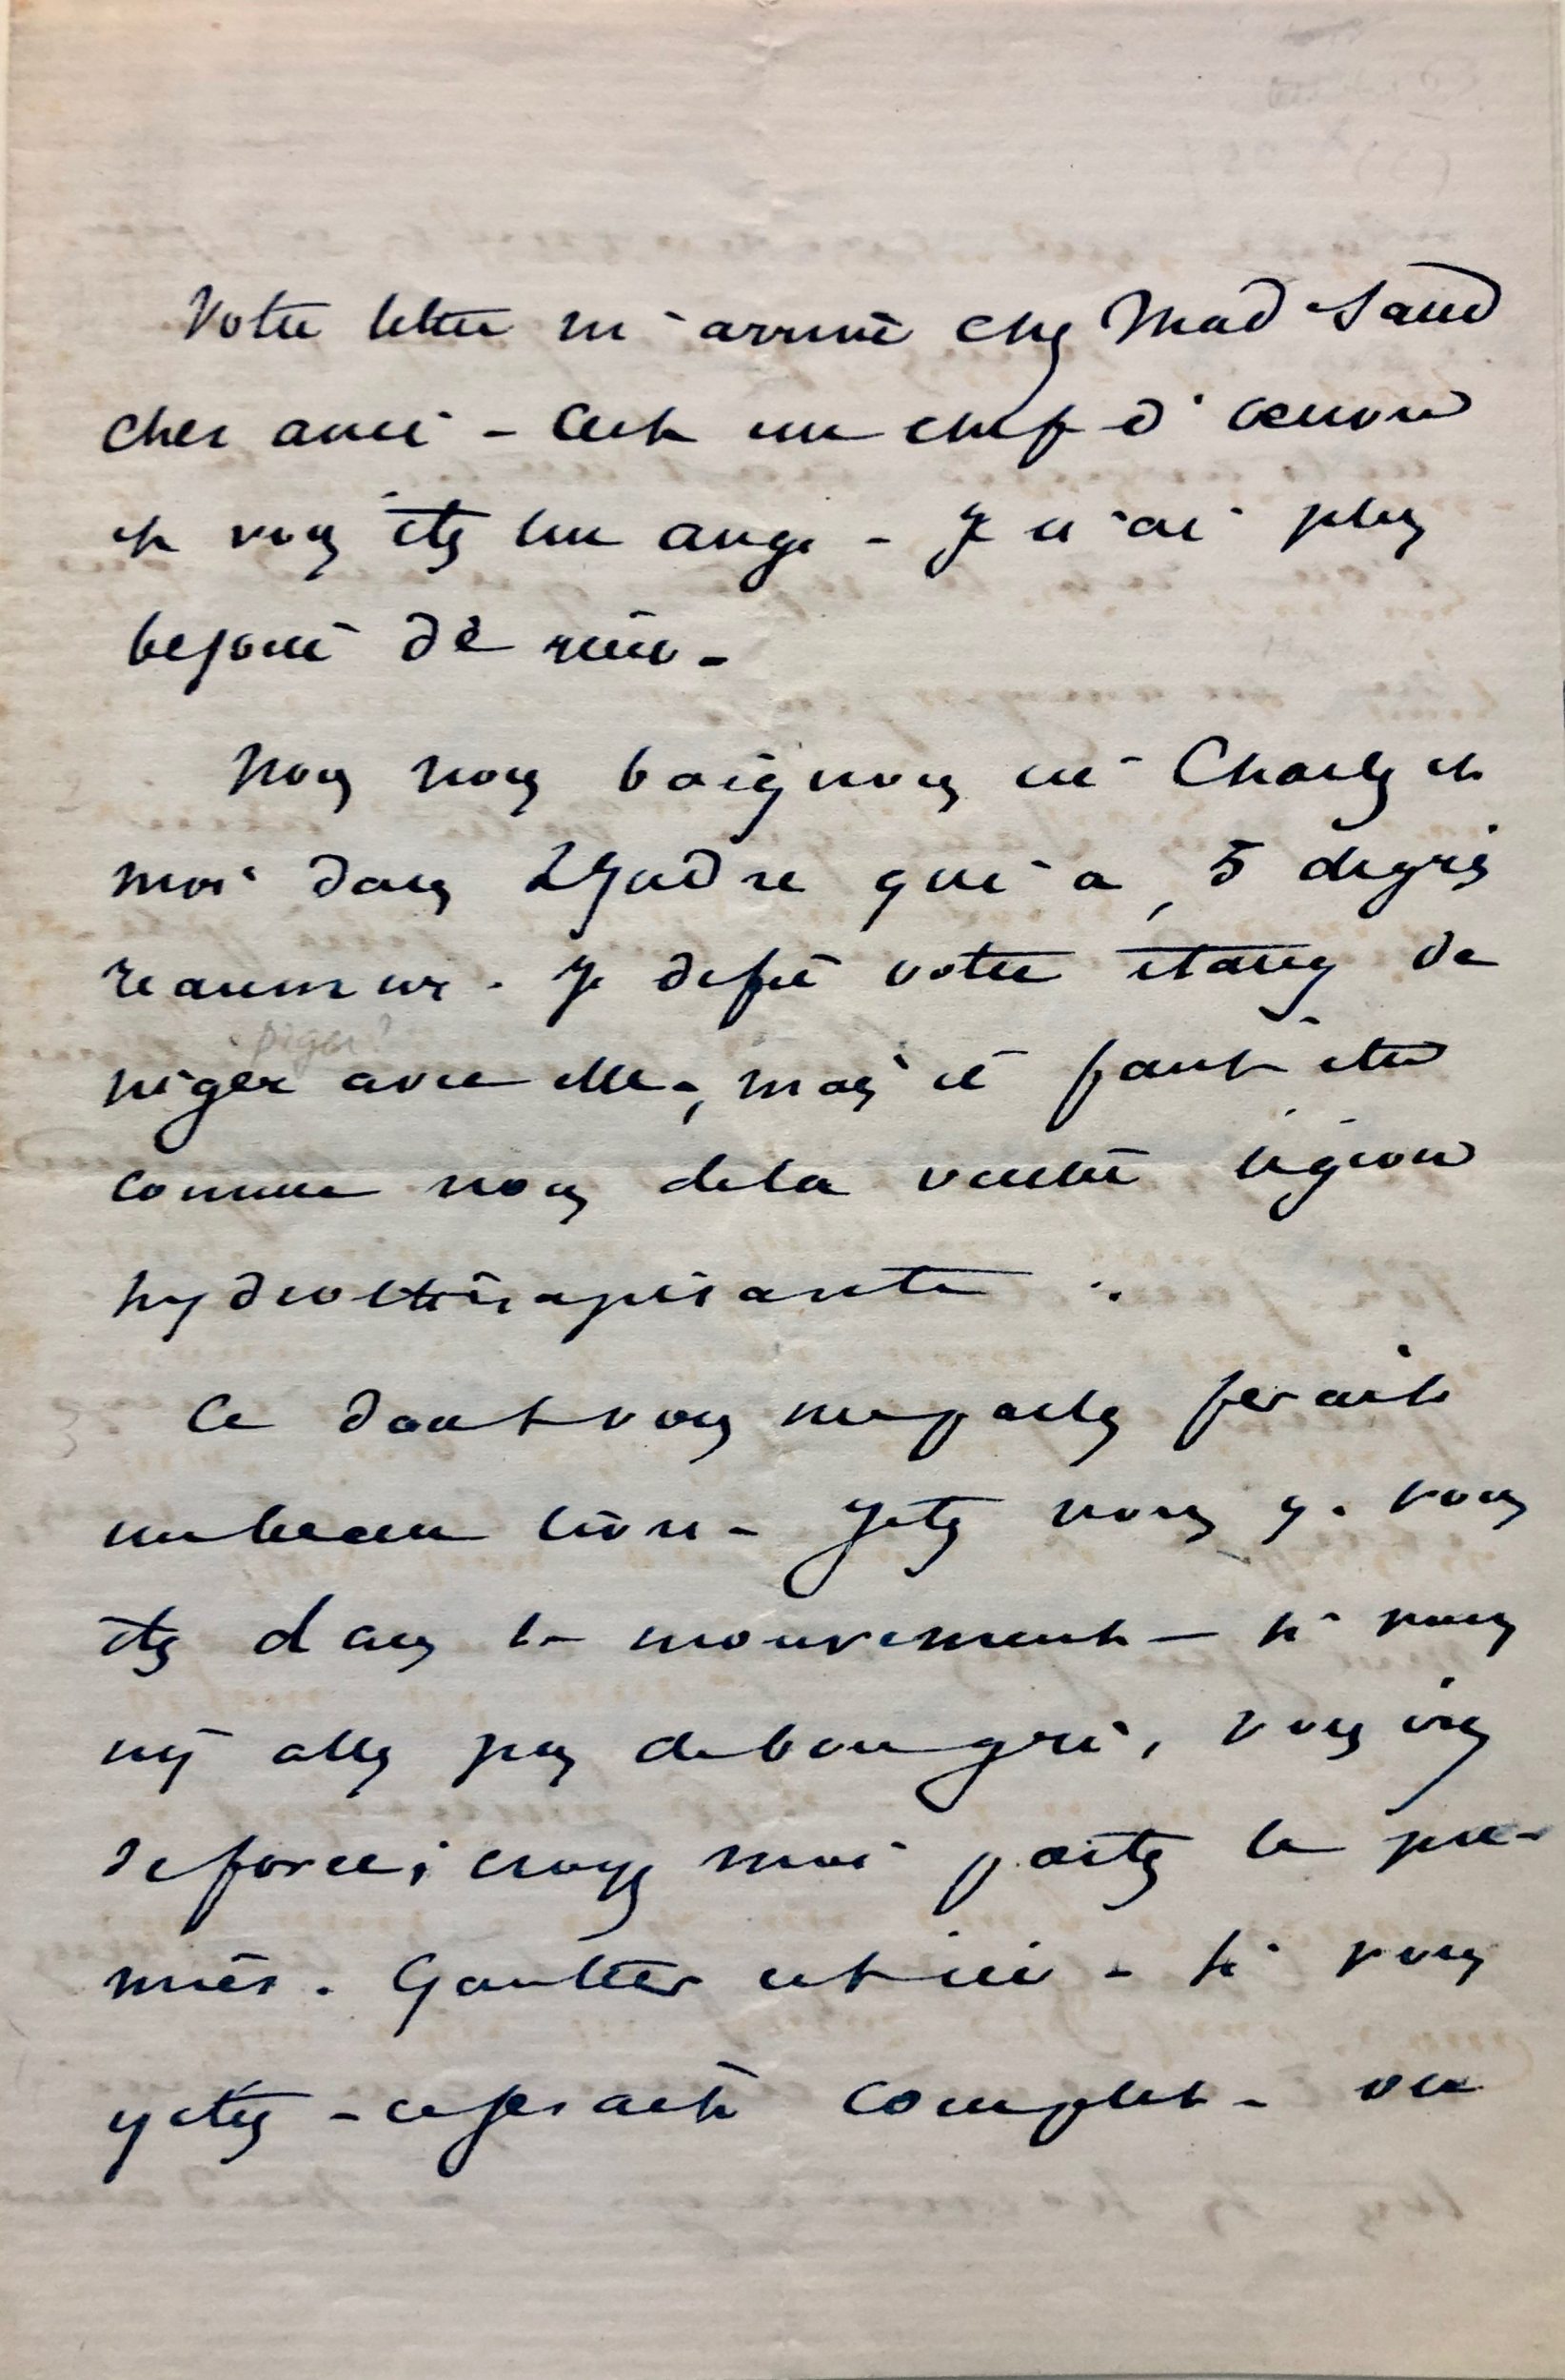 Votre lettre m'arrive chez Mad Sand
cher ami - C'est un chef d'oeuvre
et vous êtes un ange - Je n'ai plus
besoin de rien -
Nous nous baignons ici Charles et
moi dans L'Indre qui a 5 degrés
reaumur. Je defie votre étang de
piger?
piger avec elle, mais il faut être
comme nous de la vieille légion
hydrothérapisante.
Ce dont vous me parlez serait
un beau livre - Jetez vous y. vous
êtes dans le mouvement - si vous
n'y allez pas de bon gré, vous irez
de force; croyez moi partez le pre-
mier. Gautier est ici - si vous
y étiez - ce serait complet - on